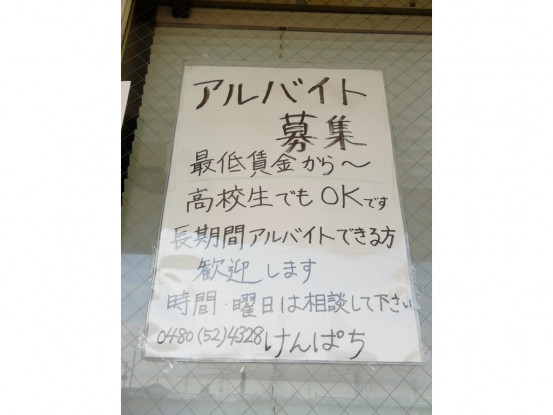 アルバイト
募集
最低賃金から〜
高校生でもOKです
長期間アルバイトできる方
歓迎します
時間・曜日は相談して下さい
0480(52)4328けんぱち